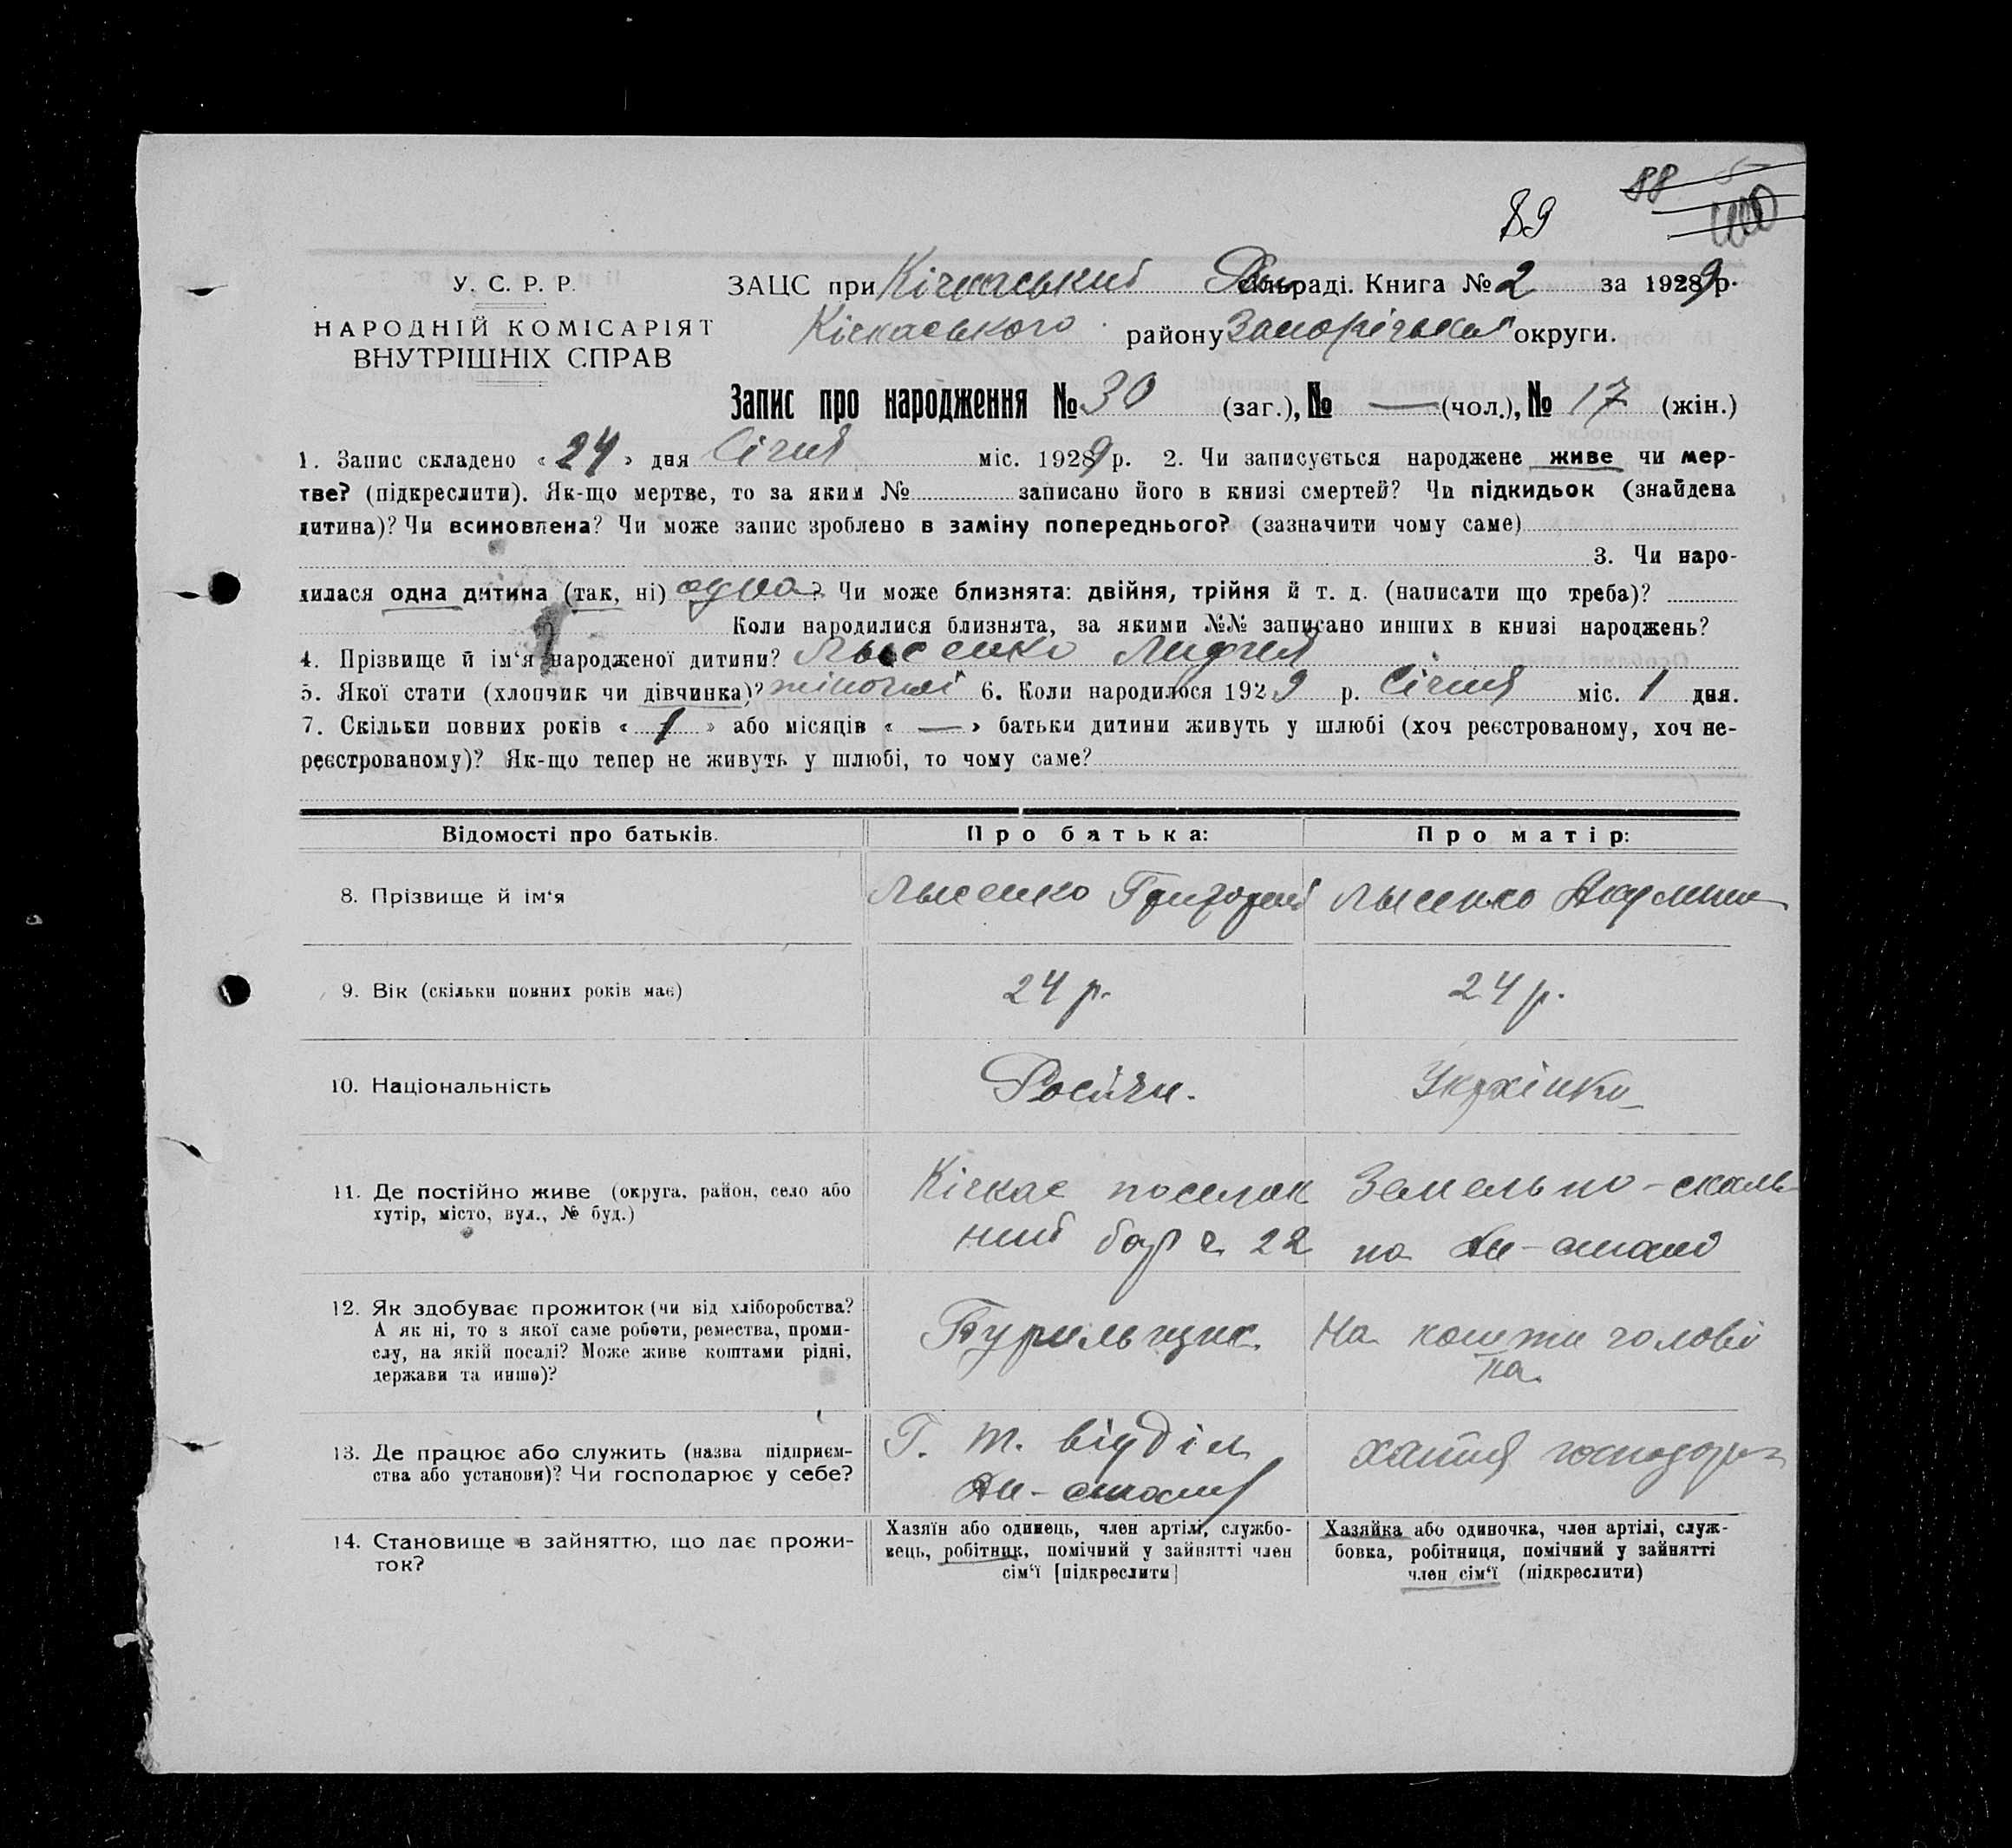 89 88
У. С. Р. Р.
НАРОДНІЙ КОМІСАРІЯТ
ВНУТРІШНІХ СПРАВ
ЗАЦС при Кічкаський раді. Книга № 2 за 1929 р.
Кічкаського району Запоріської округи.
Запис про народження № 30 (заг.), № — (чол.), № 17 (жін.)
1. Запис складено « 24 » дня Січня міс. 1929 р. 2. Чи записується народжене живе чи мер-
тве? (підкреслити). Як-що мертве, то за яким № записано його в книзі смертей? Чи підкидьок (знайдена
дитина)? Чи всиновлена? Чи може запис зроблено в заміну попереднього? (зазначити чому саме)
3. Чи наро-
дилася одна дитина (так, ні) одна? Чи може близнята: двійня, трійня й т. д. (написати що треба)?
Коли народилися близнята, за якими №№ записано инших в книзі народжень?
4. Прізвище й ім‘я народженої дитини? Лысенко Лидия
5. Якої стати (хлопчик чи дівчинка)? жіночої 6. Коли народилося 1929 р. Січня міс. 1 дня.
7. Скільки повних років « 1 » або місяців « — » батьки дитини живуть у шлюбі (хоч реєстрованому, хоч не-
реєстрованому)? Як-що тепер не живуть у шлюбі, то чому саме?
Відомості про батьків. Про батька: Про матір:
8. Прізвище й ім‘я Лысенко Григорий Лысенко Акулина
9. Вік (скільки повних років має) 24 р. 24 р.
10. Національність Росіян. Укрхінка
11. Де постійно живе (округа, район, село або
хутір, місто, вул., № буд.)
Кічкас поселок Земельно-скаль-
ний бар ч. 22 на Дн-стані
12. Як здобуває прожиток (чи від хліборобства?
А як ні, то з якої саме роботи, ремества, проми-
слу, на якій посаді? Може живе коштами рідні,
держави та инше)?
Бурильщик На кошти чолові
ка
13. Де працює або служить (назва підприєм-
ства або установи)? Чи господарює у себе?
Г. т. відділ
Дн-стана
хатня господар
14. Становище в зайняттю, що дає прожи-
ток?
Хазяїн або одинець, член артілі, службо-
вець, робітник, помічний у зайнятті член
сім‘ї [підкреслити]
Хазяйка або одиночка, член артілі, служ-
бовка, робітниця, помічний у зайнятті
член сім‘ї (підкреслити)